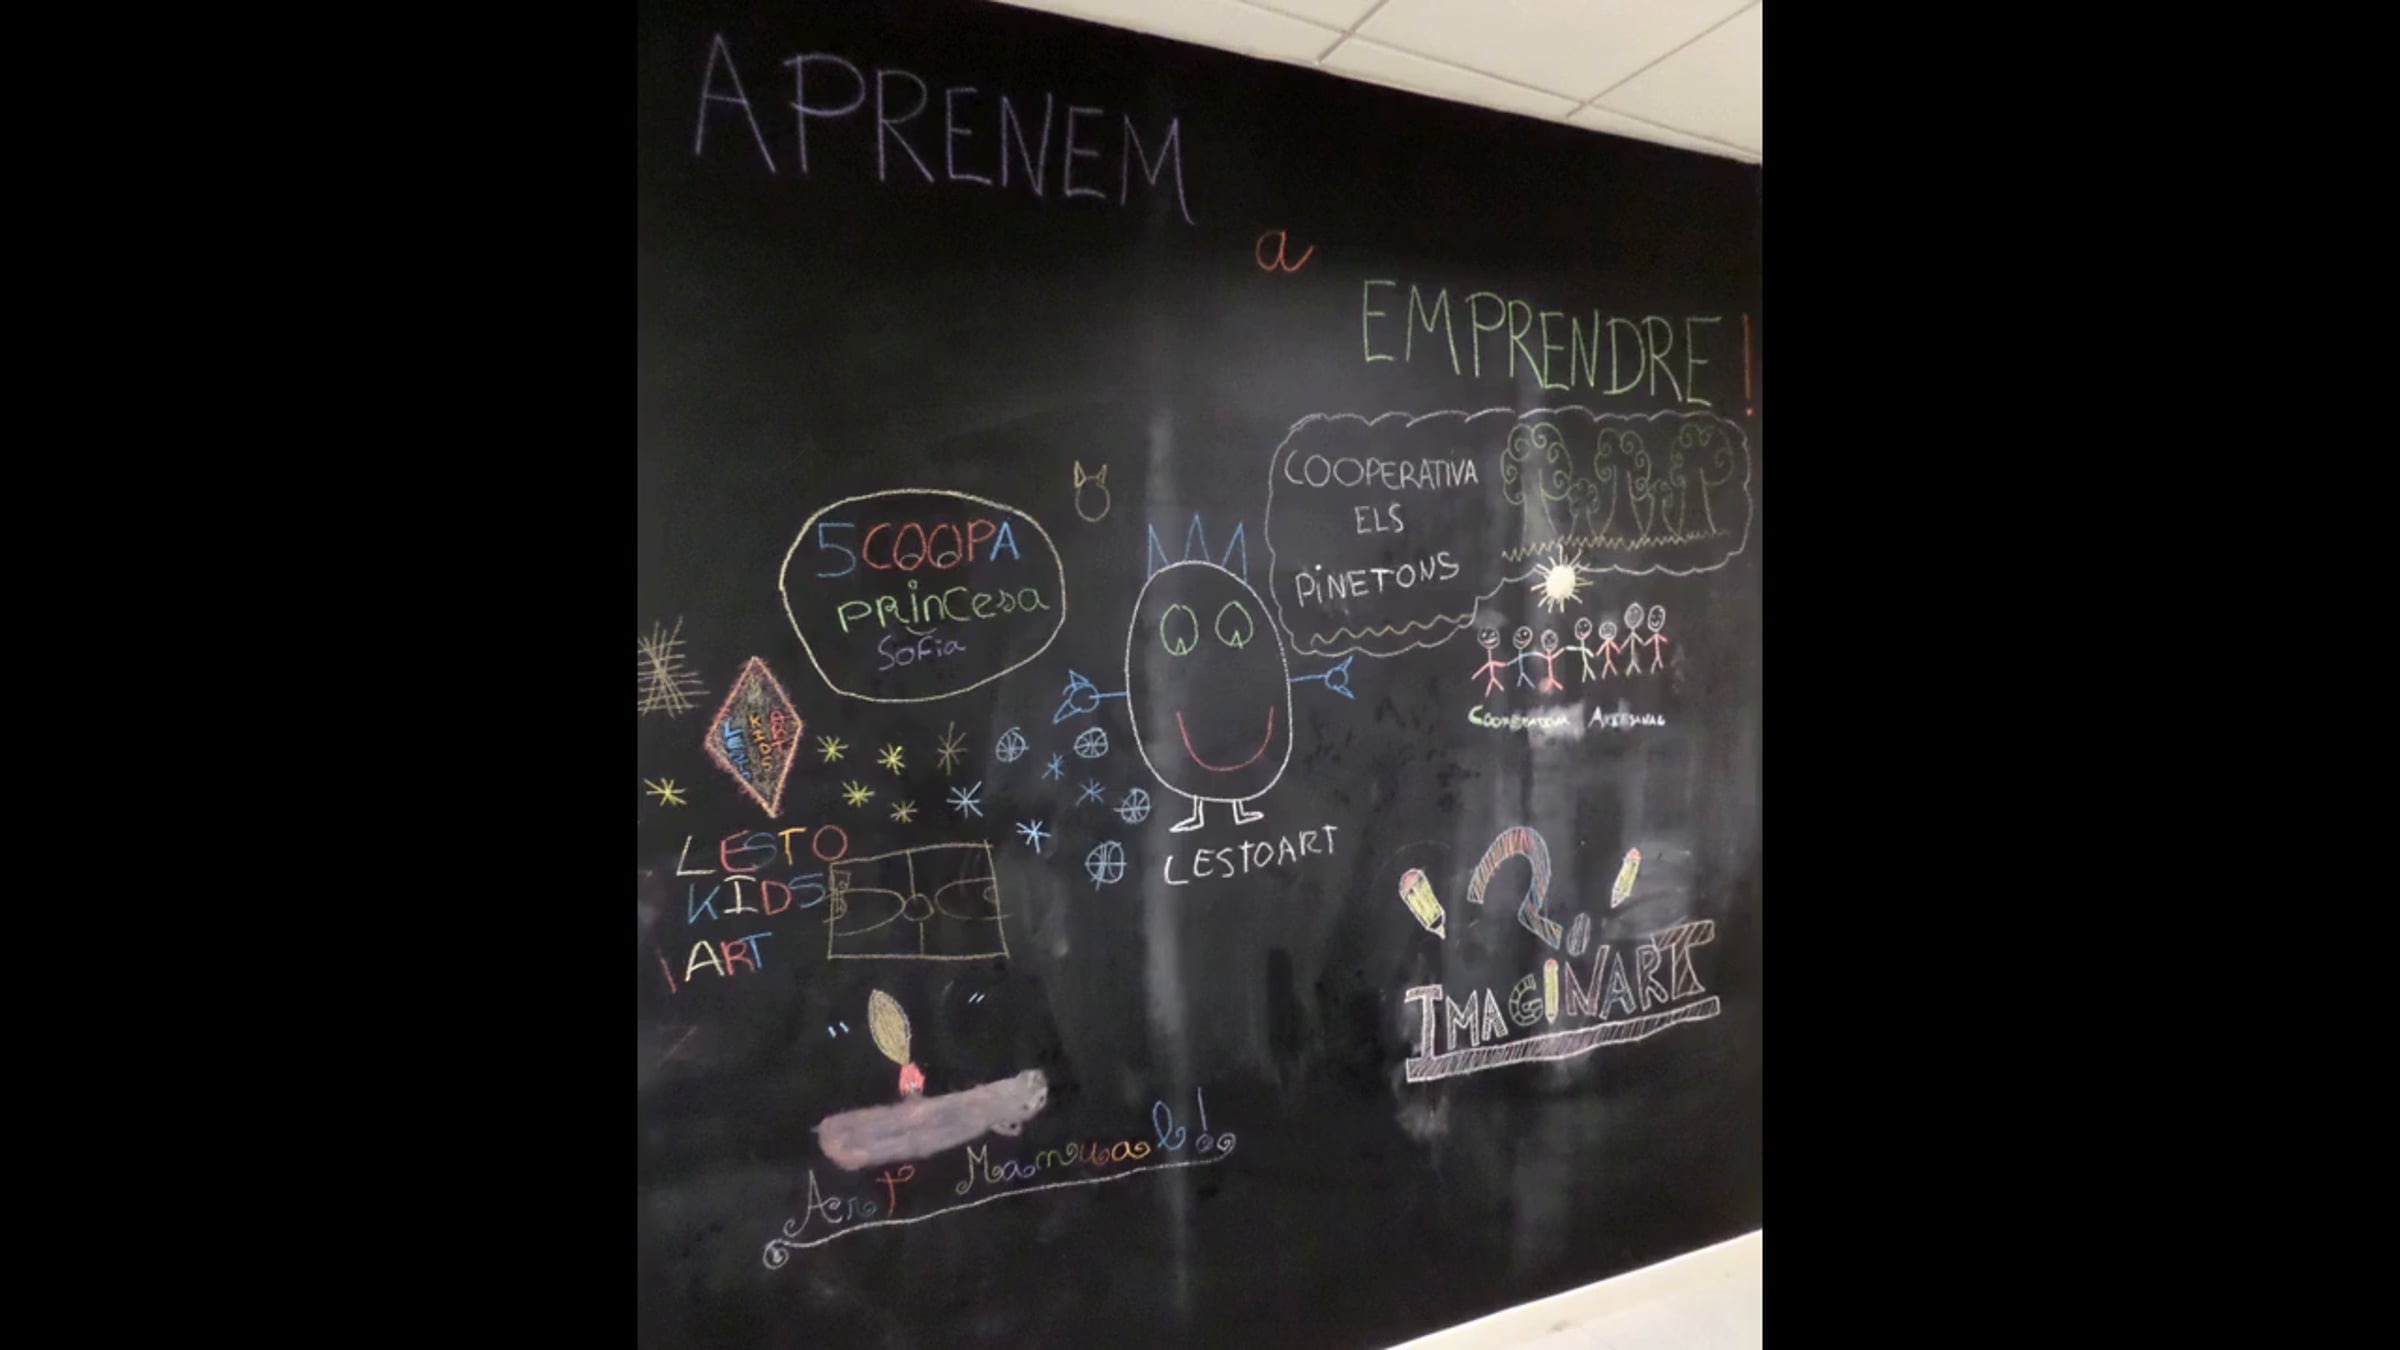 APRENEM
a
EMPRENDRE!
COOPERATIVA
ELS
PiNETONS
5COOPA
princesa
Sofia
COOPERATIVA ARTESANAL
LESTO
KIDS
ART
LESTO
KIDS
ART
LESTOART
IMAGINART
Art Manual!